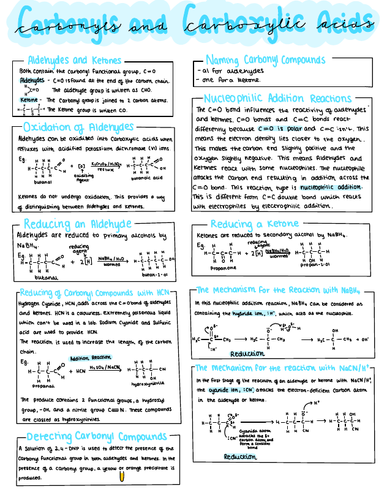 Carbonyls and Carboxylic Acids
Aldehydes and Ketones
Both contain the carbonyl functional group, C=O
Aldehydes - C=O is found at the end of the carbon chain.
The aldehyde group is written as CHO.
Ketone - The Carbonyl group is joined to 2 carbon atoms.
The Ketone group is written CO.
Oxidation of Aldehydes
Aldehydes can be oxidised into carboxylic acids when
refluxed with acidified potassium dichromate (VI) ions
Eg.
+ [O]
reflux
oxidising
agent
butanal
butanoic acid
Ketones do not undergo oxidation. This provides a way
of distinguishing between Aldehydes and Ketones.
Reducing an Aldehyde
Aldehydes are reduced to primary alcohols by
NaBH4
reducing
agent
Eg.
+ 2[H]
NaBH4/H2O
warmed
butanal
butan-1-ol
Reducing of Carbonyl Compounds with HCN
Hydrogen Cyanide, HCN, adds across the C=O bond of aldehydes
and ketones. HCN is a colourless, extremely poisonous liquid
which can't be used in a lab. Sodium Cyanide and Sulfuric
acid are used to provide HCN.
The reaction is used to increase the length of the carbon
chain.
Addition Reaction
+ HCN
H2SO4/NaCN
propanal
hydroxynitrile
The produce contains 2 functional groups, a hydroxyl
group, -OH, and a nitrile group C≡N. These compounds
are classed as hydroxynitriles.
Detecting Carbonyl Compounds
A solution of 2,4-DNP is used to detect the presence of the
Carbonyl functional group in both aldehydes and ketones. In the
presence of a carbonyl group, a yellow or orange precipitate is
produced.
Naming Carbonyl Compounds
- al for aldehydes
- one for a Ketone.
Nucleophilic Addition Reactions
The C=O bond influences the reactivity of aldehydes
and ketones. C=O bonds and C=C bonds react
differently because C=O is polar and C=C isn't. This
means the electron density lies closer to the oxygen.
This makes the carbon end slightly positive and the
oxygen slightly negative. This means Aldehydes and
Ketones react with some nucleophiles. The nucleophile
attacks the carbon end resulting in addition across the
C=O bond. This reaction type is nucleophilic addition.
This is different from C=C double bond which reacts
with electrophiles by electrophilic addition.
Reducing a Ketone
Ketones are reduced to secondary alcohol by NaBH4
reducing
agent
Eg.
+ 2[H]
NaBH4/H2O
warmed
propanone
propan-2-ol
The Mechanism for the Reaction with NaBH4
In this nucleophilic addition reaction, NaBH4 can be considered as
containing the hydride ion, :H-, which acts as the nucleophile.
Reduction
The Mechanism for the reaction with NaCN/H+
In the first stage of the reaction of an aldehyde or ketone with NaCN/H+,
the cyanide ion, :CN- attacks the electron-deficient carbon atom
in the aldehyde or ketone.
Cyanide anion
attacks the
Carbon atom, and
forms a covalent
bond
Reduction